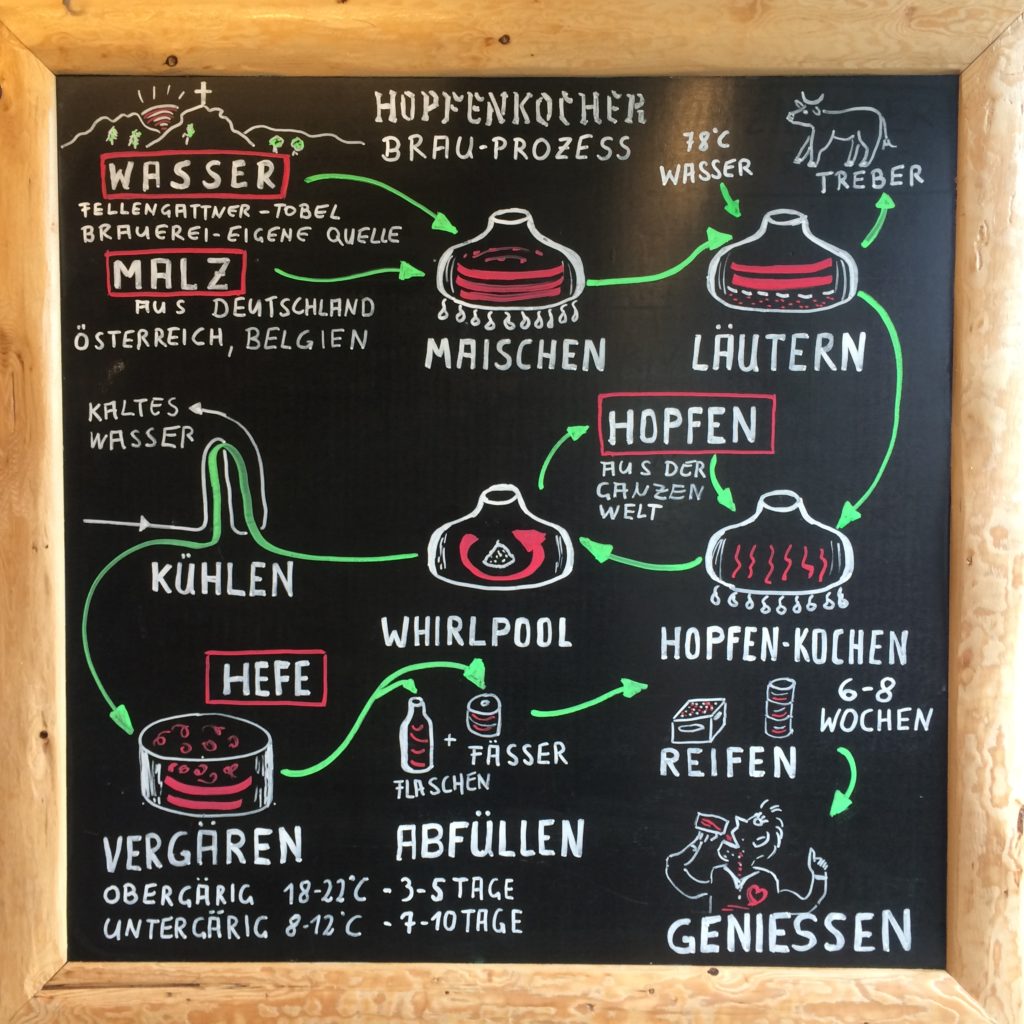 HOPFENKOCHER
BRAU-PROZESS
WASSER
FELLENGATTNER-TOBEL
BRAUEREI-EIGENE QUELLE
MALZ
AUS DEUTSCHLAND
ÖSTERREICH, BELGIEN
MAISCHEN
78°C
WASSER
TREBER
LÄUTERN
HOPFEN
AUS DER
GANZEN
WELT
HOPFEN-KOCHEN
WHIRLPOOL
KALTES
WASSER
KÜHLEN
HEFE
VERGÄREN
OBERGÄRIG 18-22°C - 3-5 TAGE
UNTERGÄRIG 8-12°C - 7-10 TAGE
+ FÄSSER
FLASCHEN
ABFÜLLEN
6-8
WOCHEN
REIFEN
GENIESSEN